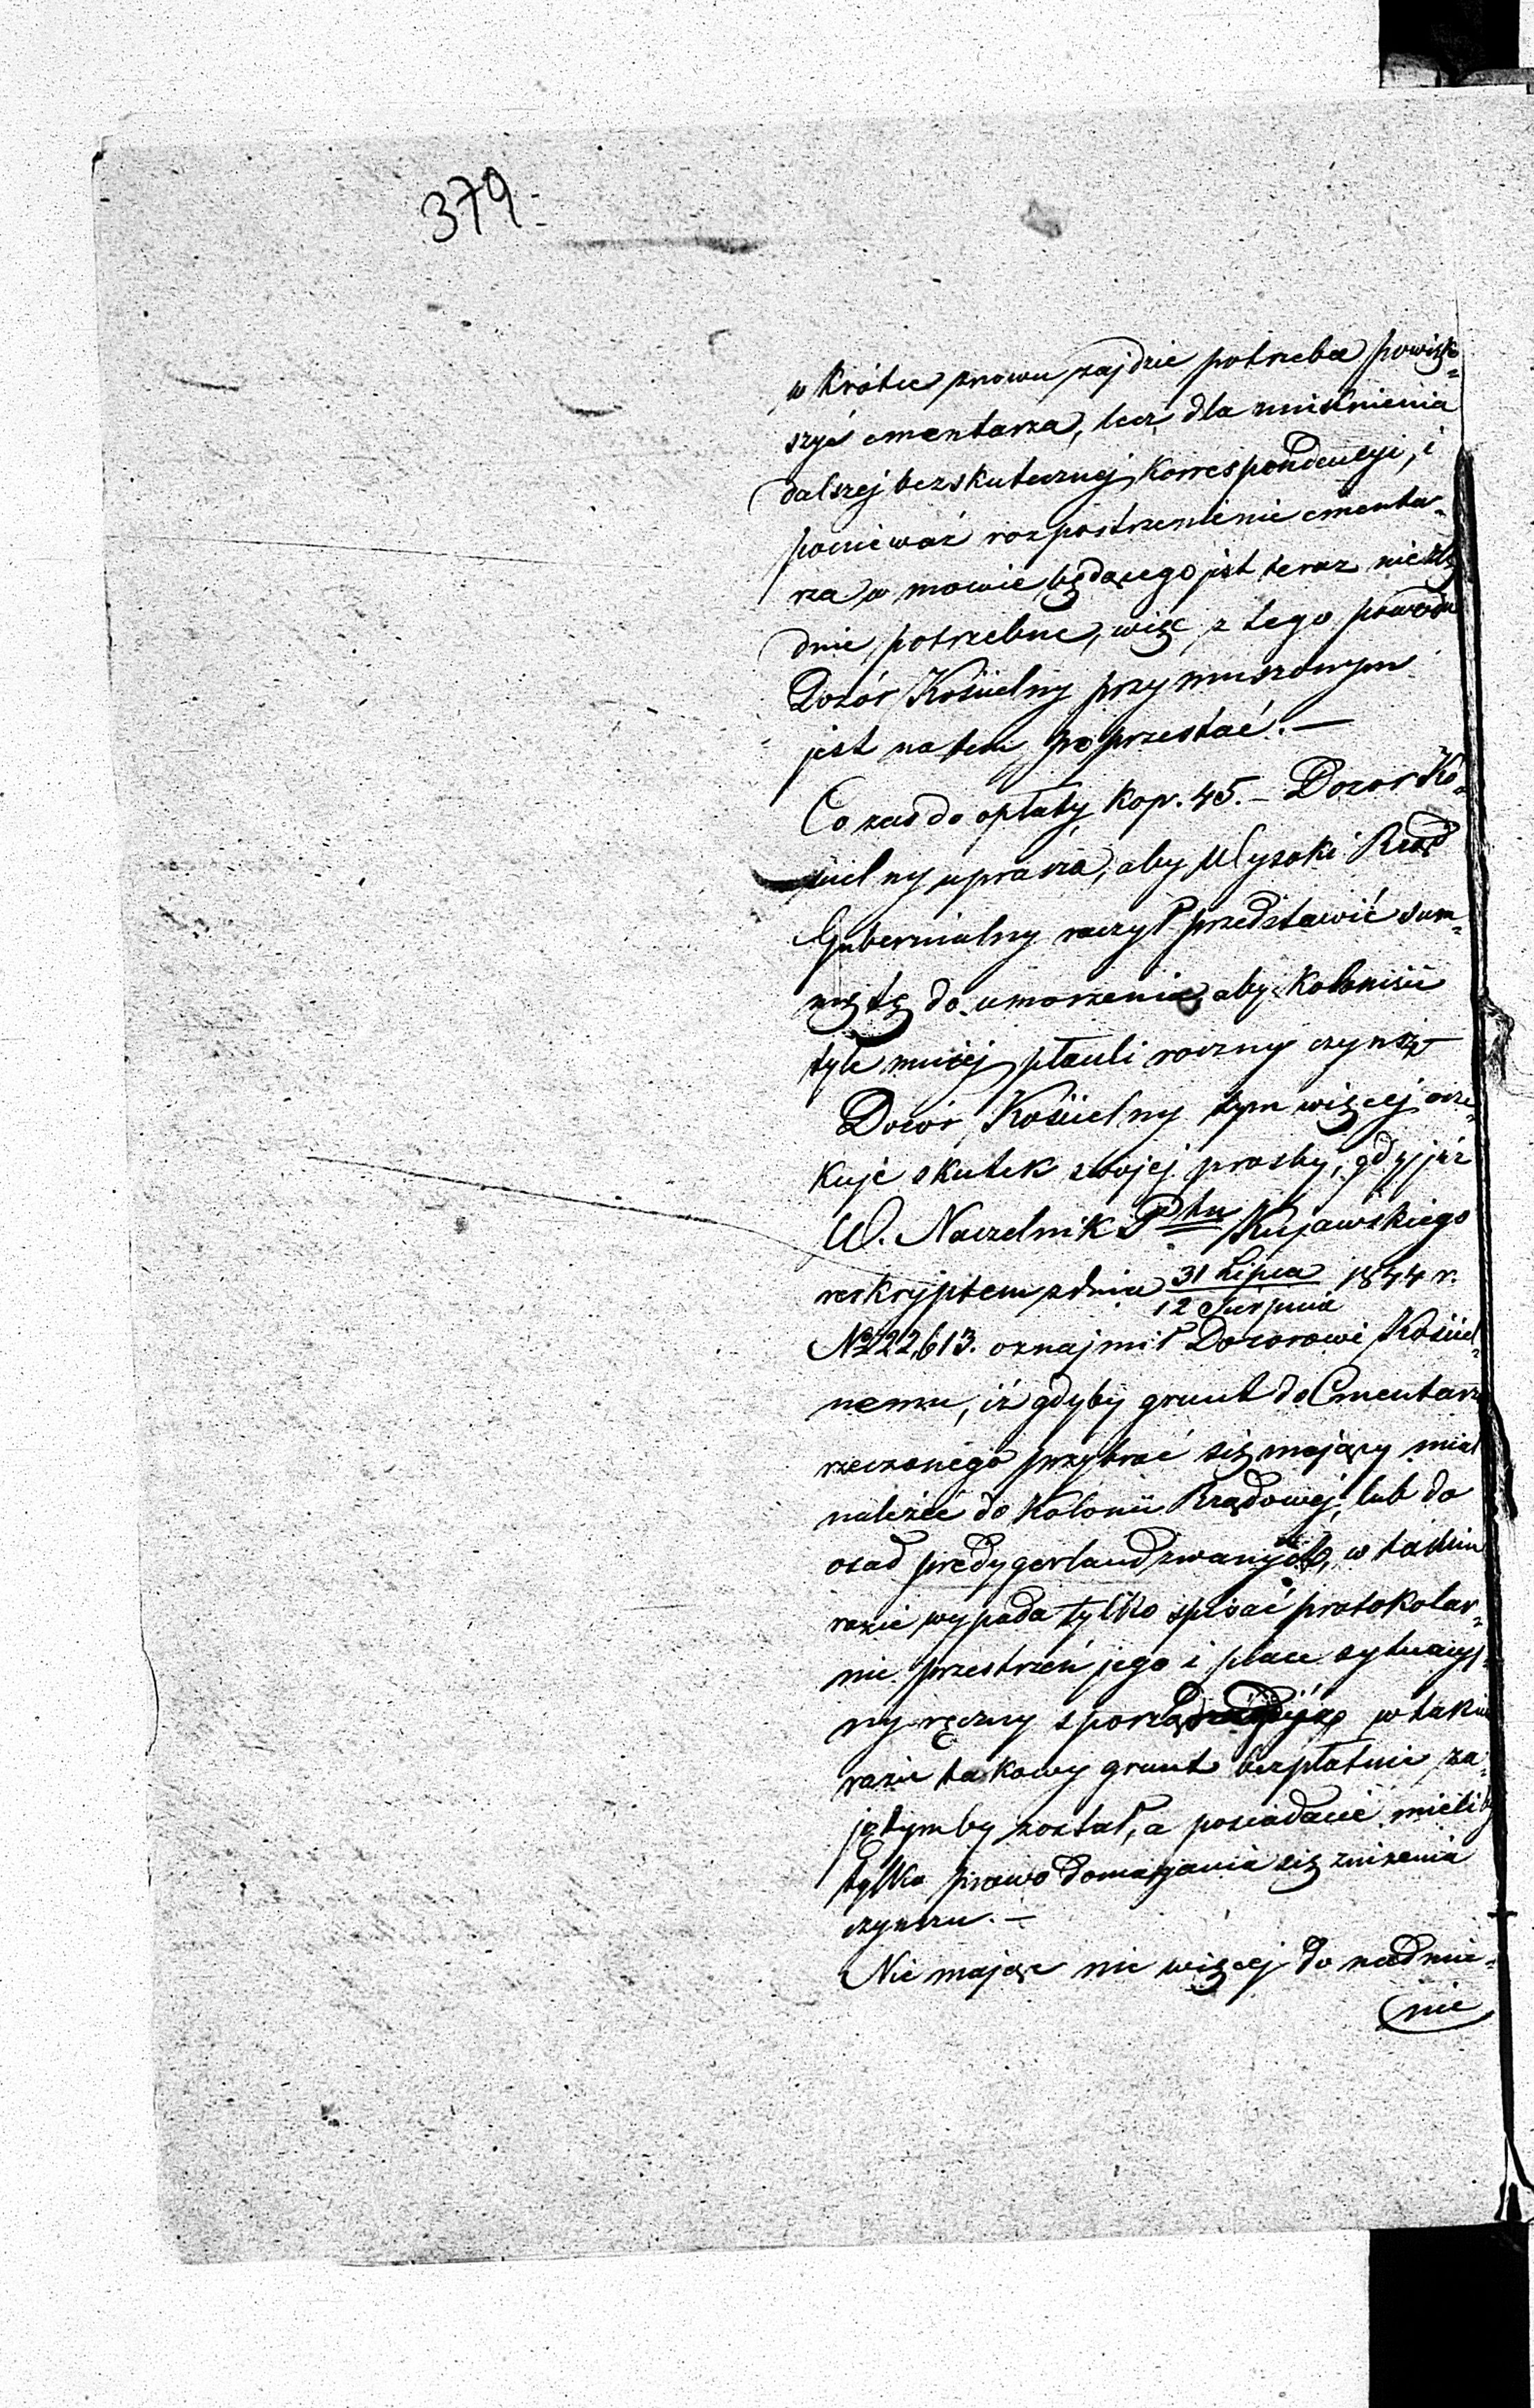 379.
w krótce znowu zajdzie potrzeba powięk=
szyć cmentarza, lecz dla uniknienia
dalszej bezskutecznej korrespondencyi, i
ponieważ rozpostrzenienie cmenta=
rza w mowie będącego jest teraz niezbę
dnie potrzebne, więc z tego powodu
Dozór Kościelny przymuszonym
jest na tem poprzestać. —
Co zaś do opłaty kop. 45. — Dozor Ko=
ścielny uprasza, aby Wysoki Rząd
Gubernialny raczył przedstawić sum=
mę tę do umorzenia, aby koloniści
tyle mniej płacili roczny czynsz —
Dozór Kościelny tym więcej ocze=
kuje skutek swojej prosby, gdy już
W. Naczelnik Ptu Kujawskiego
reskryptem z dnia 31 Lipca / 12 Sierpnia 1844 r.
№ 22,613. oznajmił Dozorowi Kościel=
nemu, iż gdyby grunt do Cmentarza
rzeczonego przybrać się mający miał
należeć do Kolonii Rządowej, lub do
osad zwanych, w takim
razie wypada tylko spisać protokolar=
nie przestrzeń jego i place sytuacyj=
ny ręczny w takim
razie takowy grunt bezpłatnie za=
jętym by został, a posiadacie mieliby
tylko prawo domagania się zniżenia
czynszu. —
Nie mając nic więcej do nadmie=
nie